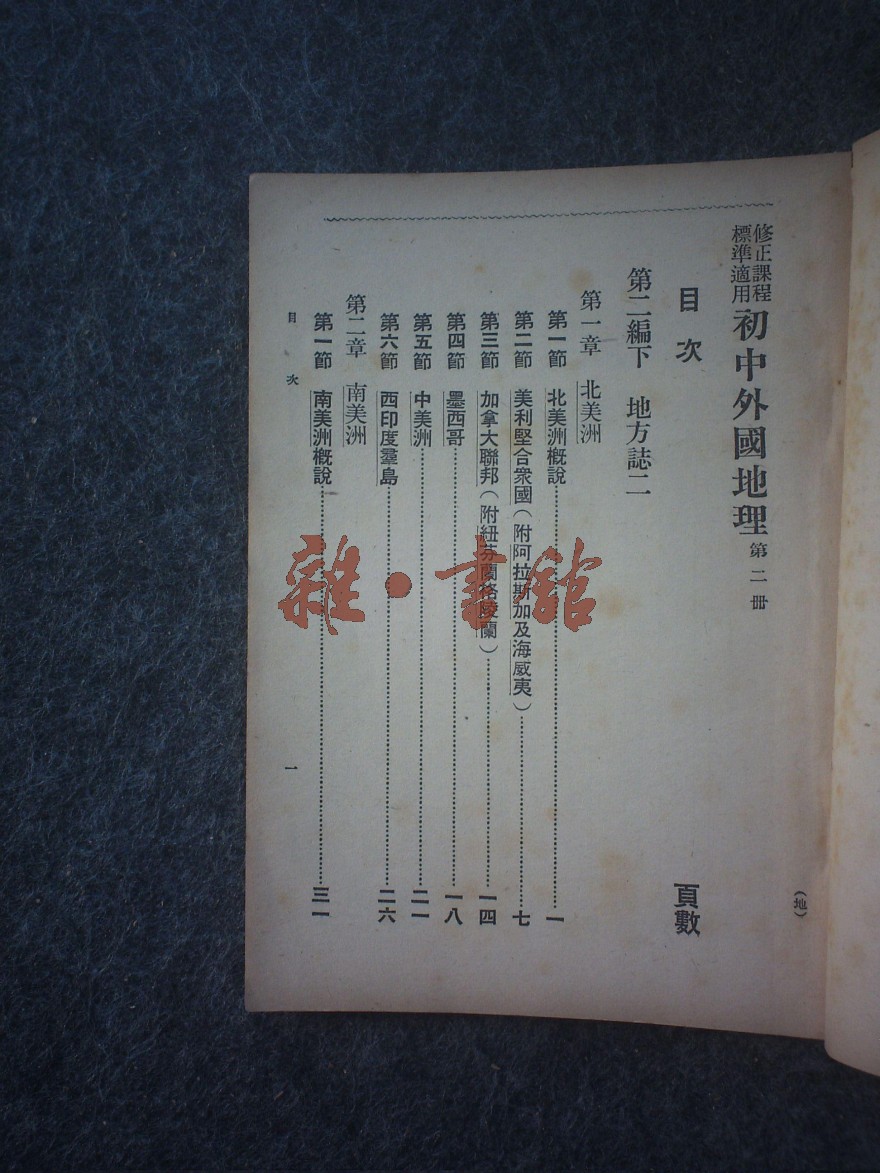 修正課程標準適用 初中外國地理 第二冊
目次 頁數
第二編下 地方誌二
第一章 北美洲
第一節 北美洲概說 一
第二節 美利堅合衆國(附阿拉斯加及海威夷) 七
第三節 加拿大聯邦(附紐芬蘭格陵蘭) 一四
第四節 墨西哥 一八
第五節 中美洲 二一
第六節 西印度羣島 二六
第二章 南美洲
第一節 南美洲概說 三一
目次 一
(地)
雜·書館